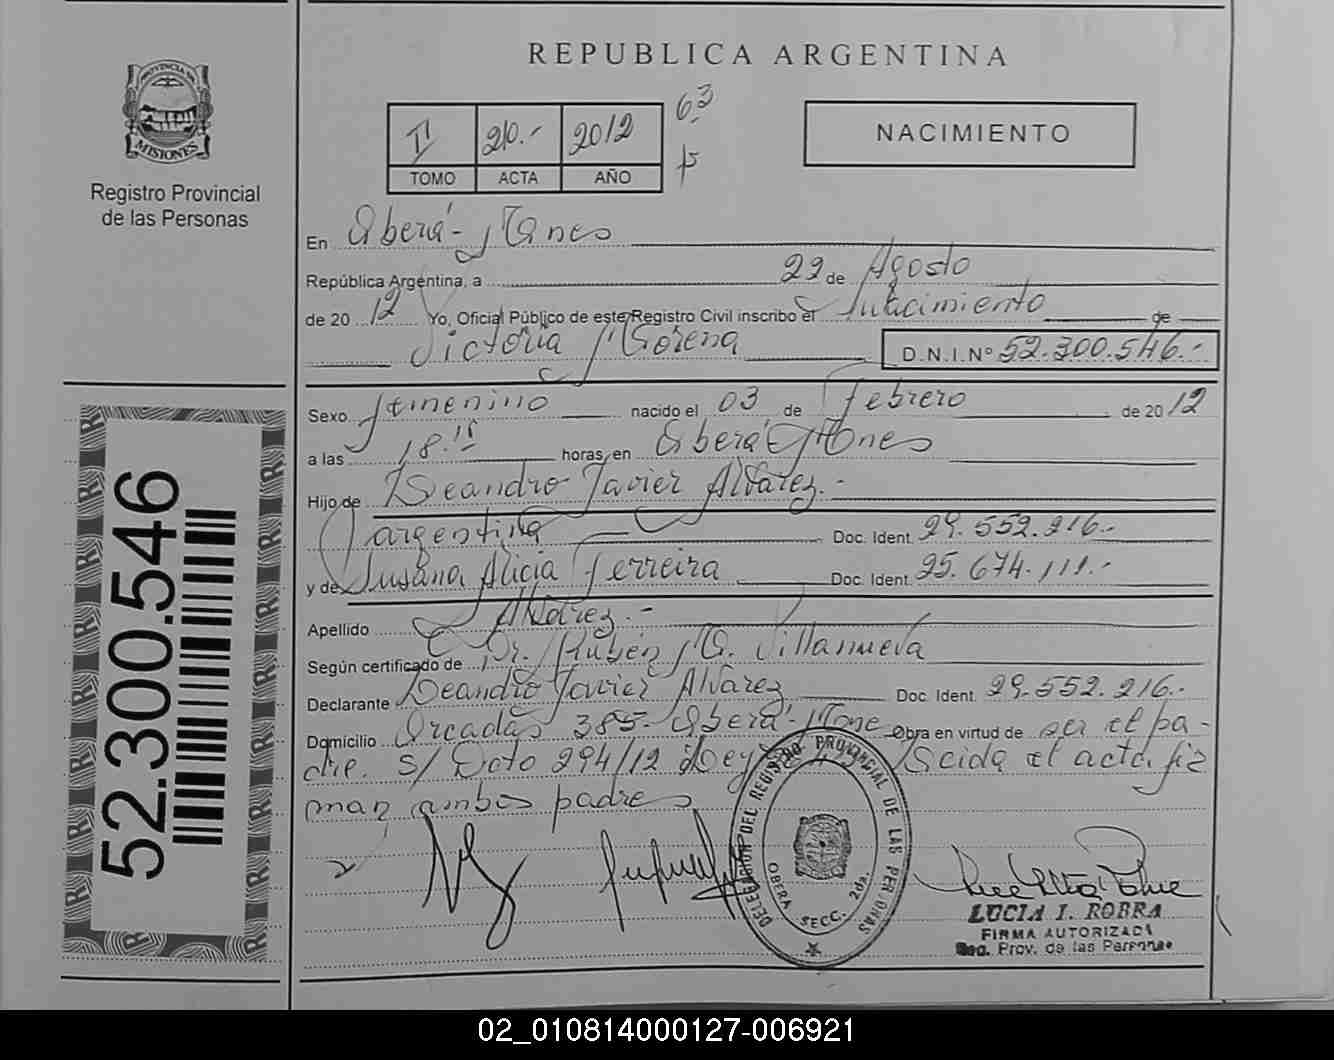 REPUBLICA ARGENTINA
PROVINCIA DE
MISIONES
Registro Provincial
de las Personas
II 210.- 2012 63
TOMO ACTA AÑO
NACIMIENTO
En Oberá - Mnes
República Argentina, a 22 de Agosto
de 20 12 Yo, Oficial Público de este Registro Civil inscribo el nacimiento de
Victoria Morena D.N.I.Nº 52.300.546.-
Sexo femenino nacido el 03 de febrero de 20 12
a las 18.15 horas, en Oberá Mnes
Hijo de Leandro Javier Alvarez.-
argentina Doc. Ident. 29.552.216.-
y de Susana Alicia Ferreira Doc. Ident. 25.674.111.-
Apellido Alvarez.-
Según certificado de Dr. Rubén M. Villanueva
Declarante Leandro Javier Alvarez Doc. Ident. 29.552.216.-
Domicilio Orcadas 385 - Oberá - Mne Obra en virtud de ser el pa-
dre. S/ Dcto 294/12 Leída el acta fir
man ambos padres
DELEGACION DEL REGISTRO PROVINCIAL DE LAS PERSONAS
OBERA SECC. 2da.
LUCIA I. ROBRA
FIRMA AUTORIZADA
Reg. Prov. de las Personas
52.300.546
02_010814000127-006921